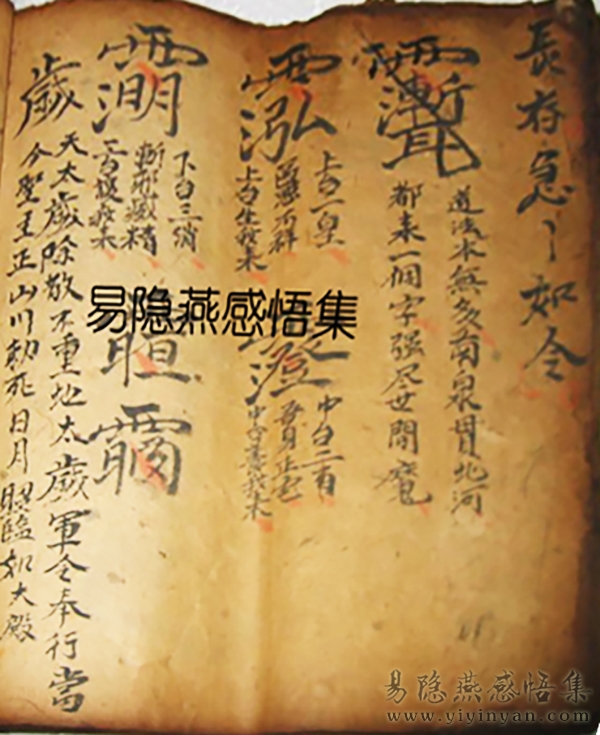 長存急〻如令
道法本無多南泉貫北河
都来一個字強尽世間魔
上台一皇
區惡不祥
上台生我来
澄
中台二白
吾身正
中台養我来
下台三消
斬邪滅精
下台護我来
歲
天太歲除敬不重地太歲軍令奉行當
今聖王正山川勅死日月照臨如大殿
易隐燕感悟集
易隐燕感悟集
www.yiyinyan.com